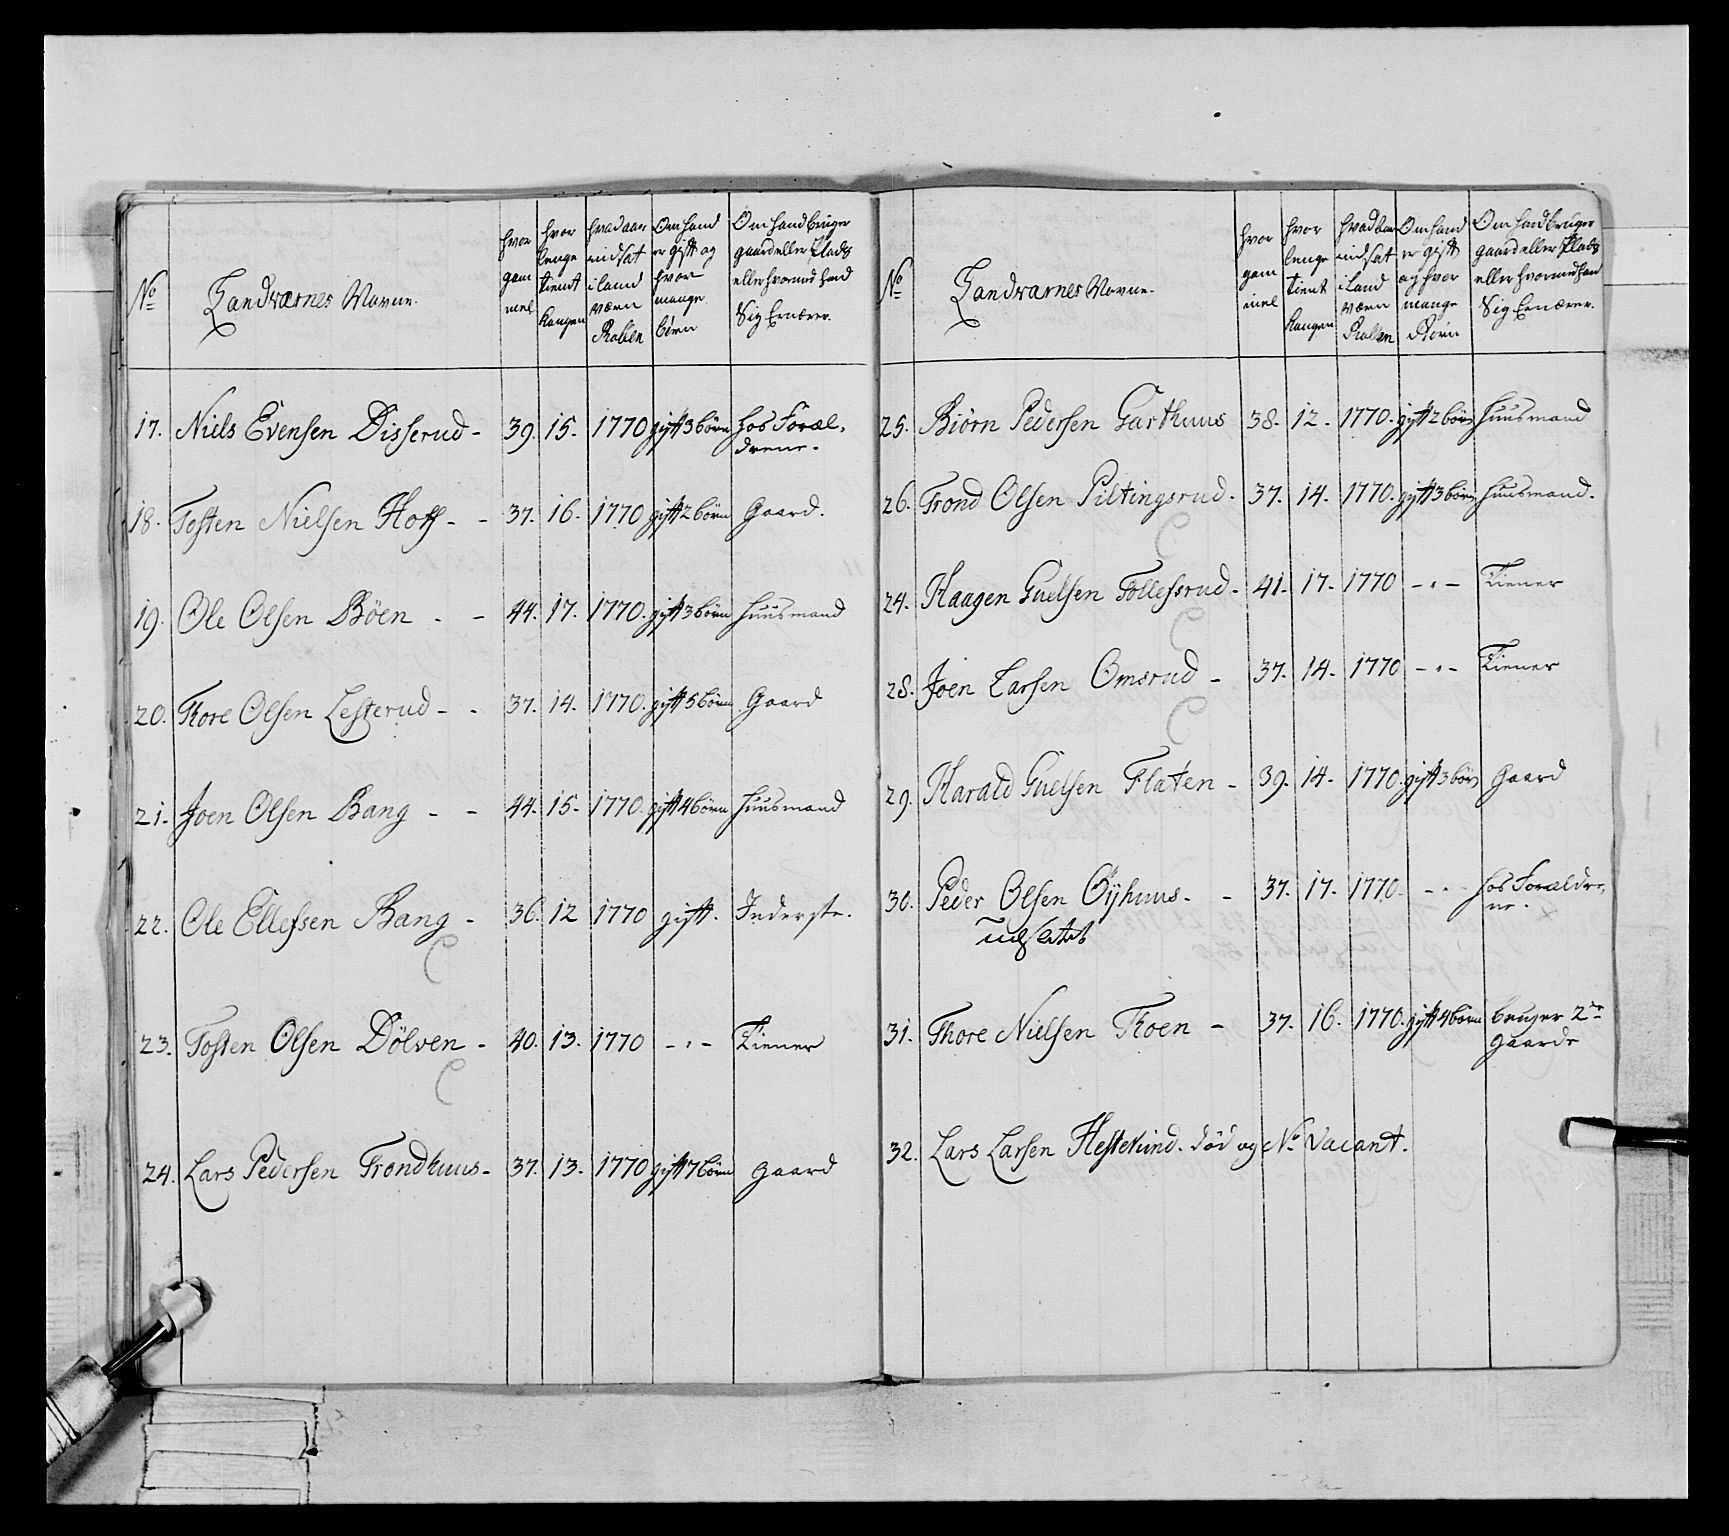 No
Landværnes Navne.
hvor gam mel
hvor lenge tient Kongen
hvad aar indsat i Land værn Rollen
Om hand er gift og hvor mange börn
Om hand bruger gaard eller Plads eller hvormed hand Sig Ernærer.
17. Niels Evensen Disserud - 39. 15. 1770 gift 3 börn hos Foræl-
drene.
18. Tosten Nielsen Hoff - - 37. 16. 1770 gift 2 börn Gaard.
19. Ole Olsen Böen . - 44. 17. 1770. gift 3 börn Huusmand
20. Thore Olsen Lesterud - . 37. 14. 1770. gift 5 börn Gaard
21. Joen Olsen Bang - - 44. 15. 1770. gift 4 börn Huusmand
22. Ole Ellefsen Bang - 36. 12 1770 gift. Inderste.
23. Tosten Olsen Dölven - 40. 13. 1770 - " - Tiener
24. Lars Pedersen Trondhuus - 37. 13. 1770 gift 7 börn gaard
No
Landværnes Navne.
hvor gam mel
hvor lenge tient Kongen
hvad aar indsat i Land værn Rollen
Om hand er gift og hvor mange Börn
Om hand bruger gaard eller Plads eller hvormed hand Sig Ernærer.
25. Biörn Pedersen Garthuus 38. 12. 1770. gift 2 börn Huusmand
26. Trond Olsen Piltingsrud. 37. 14. 1770. gift 3 börn Huusmand.
24. Haagen Guelsen Tollefsrud - 41. 17. 1770 - " - Tiener
28. Joen Larsen Omsrud - 37. 14. 1770 - " - Tiener
29. Harald Guelsen Flaten - 39. 14. 1770. gift 3 börn Gaard
30. Peder Olsen Öyhuus. - 37. 17. 1770. - " - hos Forældre-
ne.
udslettet
31. Thore Nielsen Roen - 37. 16. 1770. gift 4 börn bruger 2de
gaarde
32. Lars Larsen Hestekind. död og No vacant.